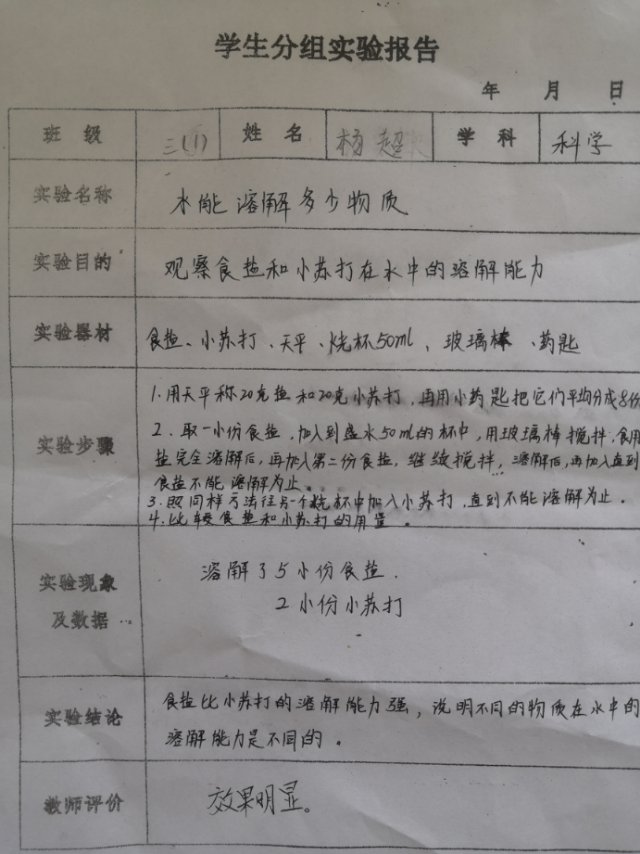 学生分组实验报告
年 月 日
班级 三(1) 姓名 杨超 学科 科学
实验名称 水能溶解多少物质
实验目的 观察食盐和小苏打在水中的溶解能力
实验器材 食盐、小苏打、天平、烧杯50ml、玻璃棒、药匙
实验步骤
1.用天平称20克盐和20克小苏打,再用小药匙把它们平均分成8份
2.取一小份食盐,加入到盛水50ml的杯中,用玻璃棒搅拌,食用
盐完全溶解后,再加入第二份食盐,继续搅拌,溶解后,再加入直到
食盐不能溶解为止。
3.照同样方法往另一个烧杯中加入小苏打,直到不能溶解为止。
4.比较食盐和小苏打的用量。
实验现象
及数据
溶解了5小份食盐.
2小份小苏打
实验结论
食盐比小苏打的溶解能力强,说明不同的物质在水中的
溶解能力是不同的。
教师评价 效果明显。